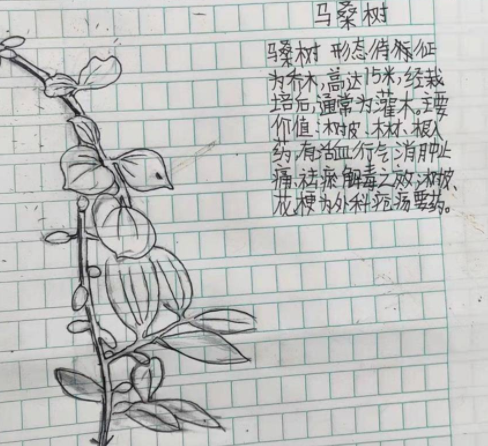 马桑树
马桑树 形态特征
为乔木,高达15米,经栽
培后,通常为灌木。主要
价值:树皮、木材、根入
药,有活血行气,消肿止
痛,祛瘀解毒之效;树皮、
花梗为外科疮疡要药。